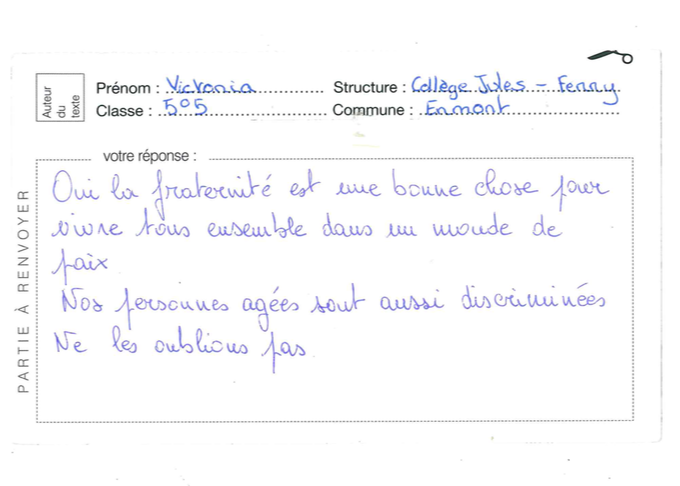 Auteur du texte
Prénom : Victoria Structure : Collège Jules - Ferry
Classe : 5°5 Commune : Ermont
votre réponse :
PARTIE À RENVOYER
Oui la fraternité est une bonne chose pour
vivre tous ensemble dans un monde de
paix
Nos personnes agées sont aussi discriminées
Ne les oublions pas